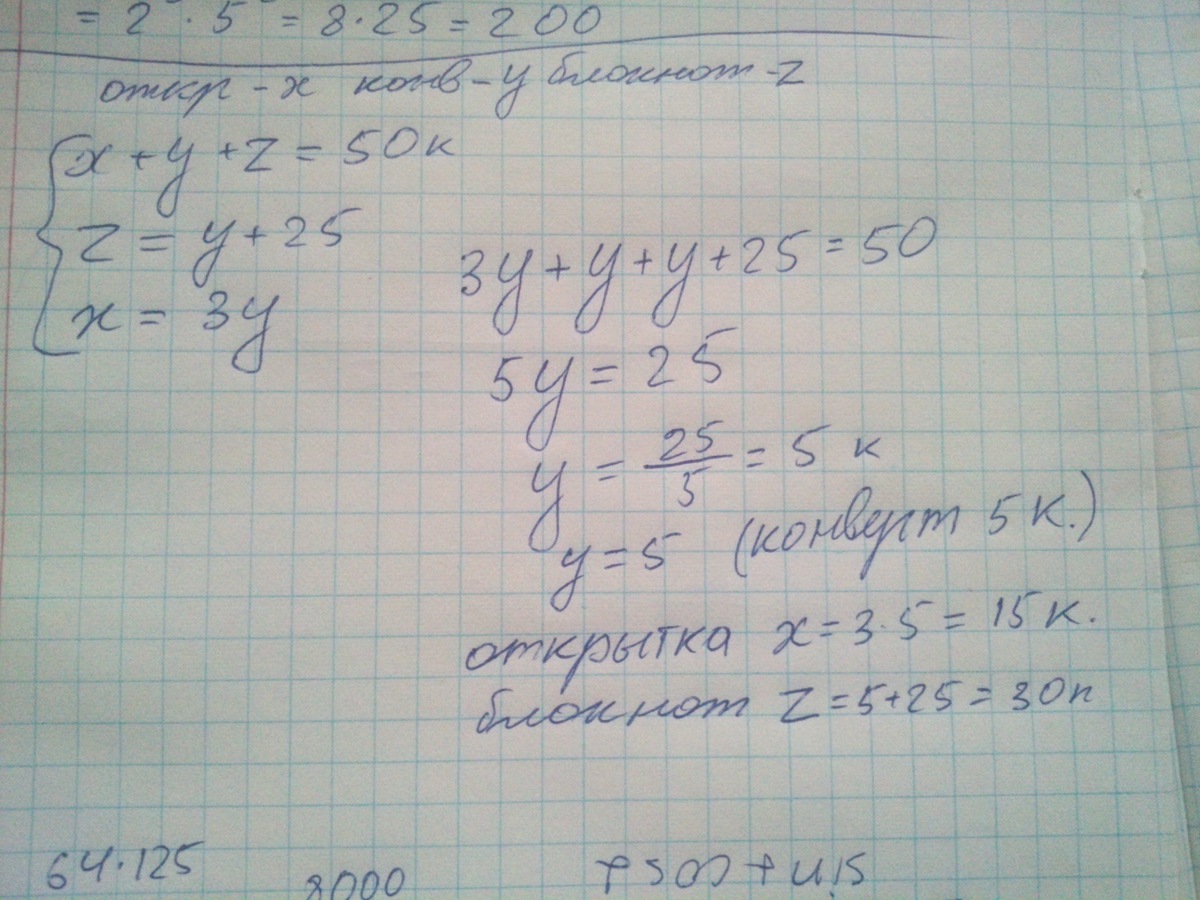 = 2³ · 5² = 8·25 = 200
откр - x конв - y блокнот - z
x + y + z = 50к
z = y + 25
x = 3y
3y + y + y + 25 = 50
5y = 25
y = 25/5 = 5 к
y = 5 (конверт 5 к.)
открытка x = 3·5 = 15 к.
блокнот z = 5+25 = 30к
64·125
8000